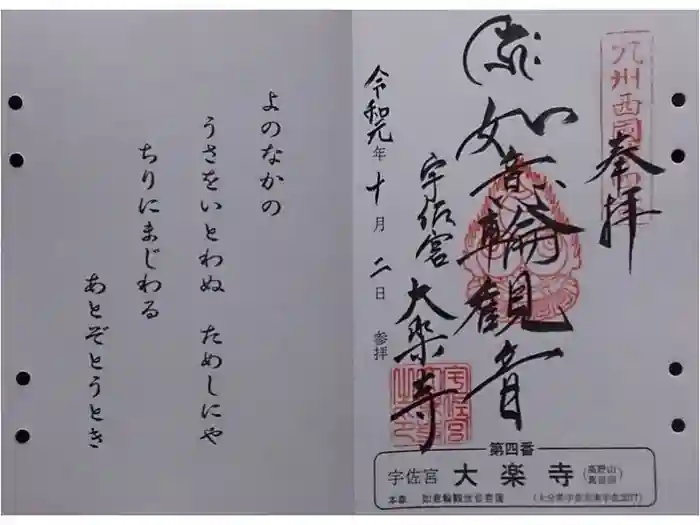 九州西国
奉拝
如意輪観音
宇佐宮
大楽寺
令和元年十月二日 参拝
宇佐宮
第四番
宇佐宮 大楽寺 (高野山真言宗)
本尊 如意輪観世音菩薩
よのなかの
うさをいとわぬ ためしにや
ちりにまじわる
あとぞとうとき